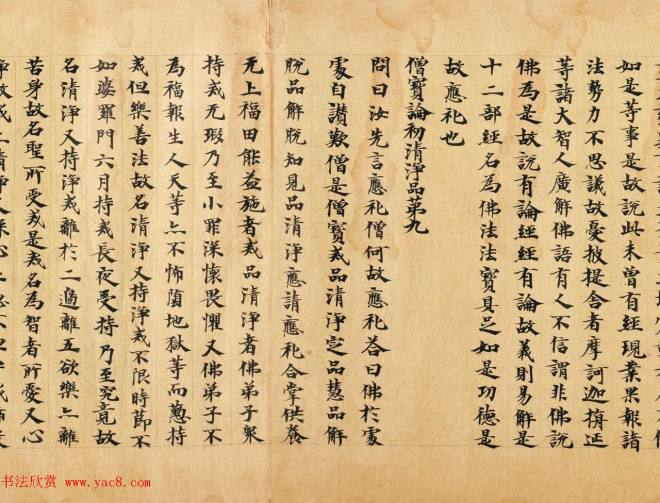 如是等事是故說此未曾有經現業果報諸
法勢力不思議故憂披提舍者摩訶迦旃延
等諸大智人廣解佛語有人不信謂非佛說
佛為是故說有論經經有論故義則易解是
十二部經名為佛法法寶具足如是功德是
故應礼也
僧寶論初清淨品第九
問曰汝先言應礼僧何故應礼荅曰佛於處
處自讚歎僧是僧寶戒品清淨定品慧品解
脫品解脫知見品清淨應請應礼合掌供養
无上福田能益施者戒品清淨者佛弟子眾
持戒无瑕乃至小罪深懷畏懼又佛弟子不
為福報生人天等亠不怖箇地獄等而懃持
戒但樂善法故名清淨又持淨戒不限時莭不
如婆羅門六月持戒長夜受持乃至究竟故
名清淨又持淨戒離於二邊離五欲樂亠離
苦身故名聖所受戒是戒名為智者所愛又心
书法欣赏 www.yac8.com